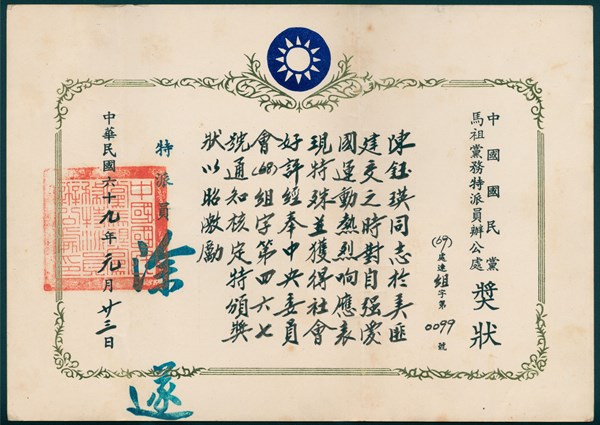 中國國民黨
馬祖黨務特派員辦公處
獎狀
(69)處達組字第0099號
陳鈺瑛同志於美匪
建交之時對自強愛
國運動熱烈响應表
現特殊並獲得社會
好評經奉中央委員
會(68)組字第四六七
號通知核定特頒獎
狀以昭激勵
特派員 涂遂
中華民國六十九年元月廿三日